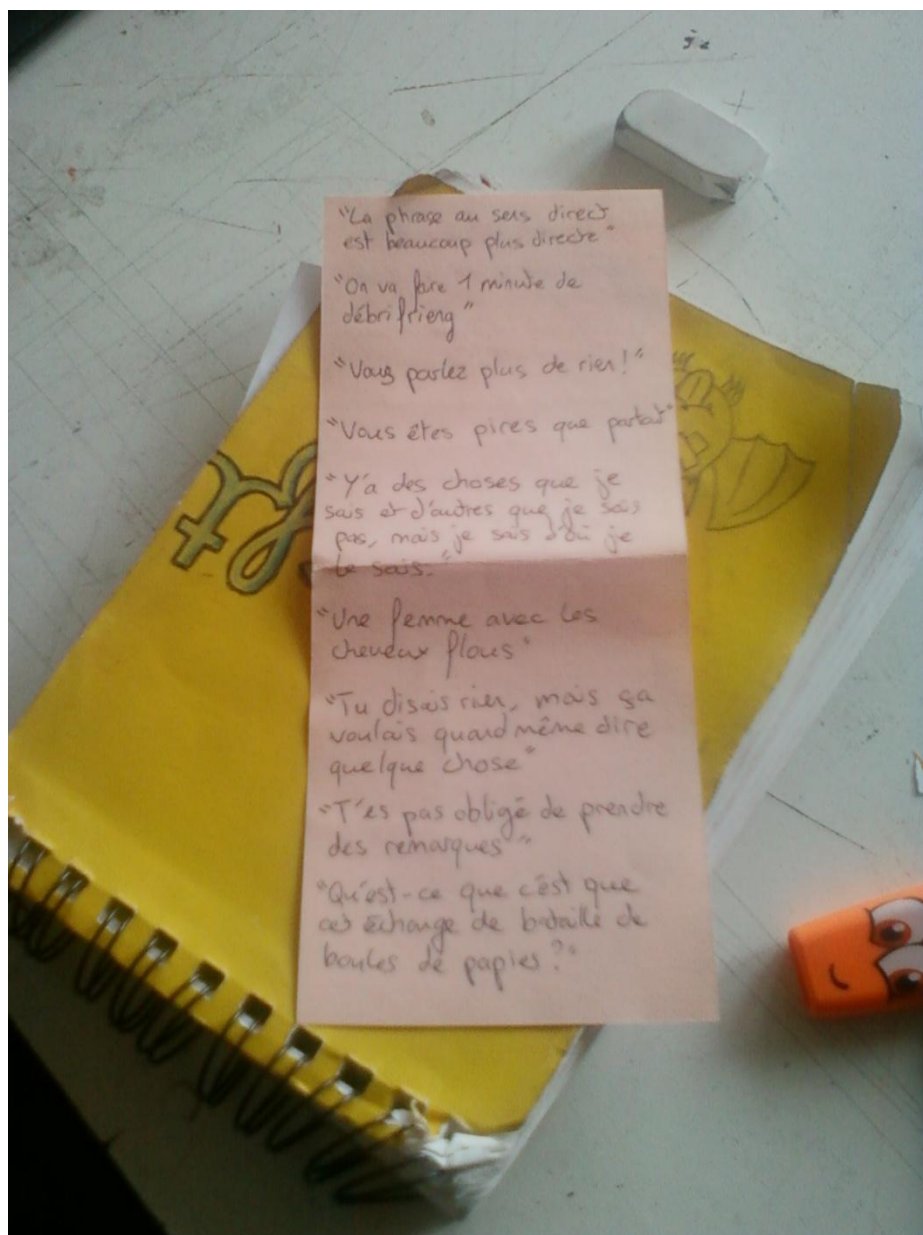 "La phrase au sens direct
est beaucoup plus directe"
"On va faire 1 minute de
débrifrieng"
"Vous parlez plus de rien!"
"Vous êtes pires que partout"
"Y'a des choses que je
sais et d'autres que je sais
pas, mais je sais d'où je
le sais."
"Une femme avec les
cheveux flous"
"Tu disais rien, mais ça
voulais quand même dire
quelque chose"
"T'es pas obligé de prendre
des remarques"
"Qu'est-ce que c'est que
cet échange de bataille de
boules de papier?"